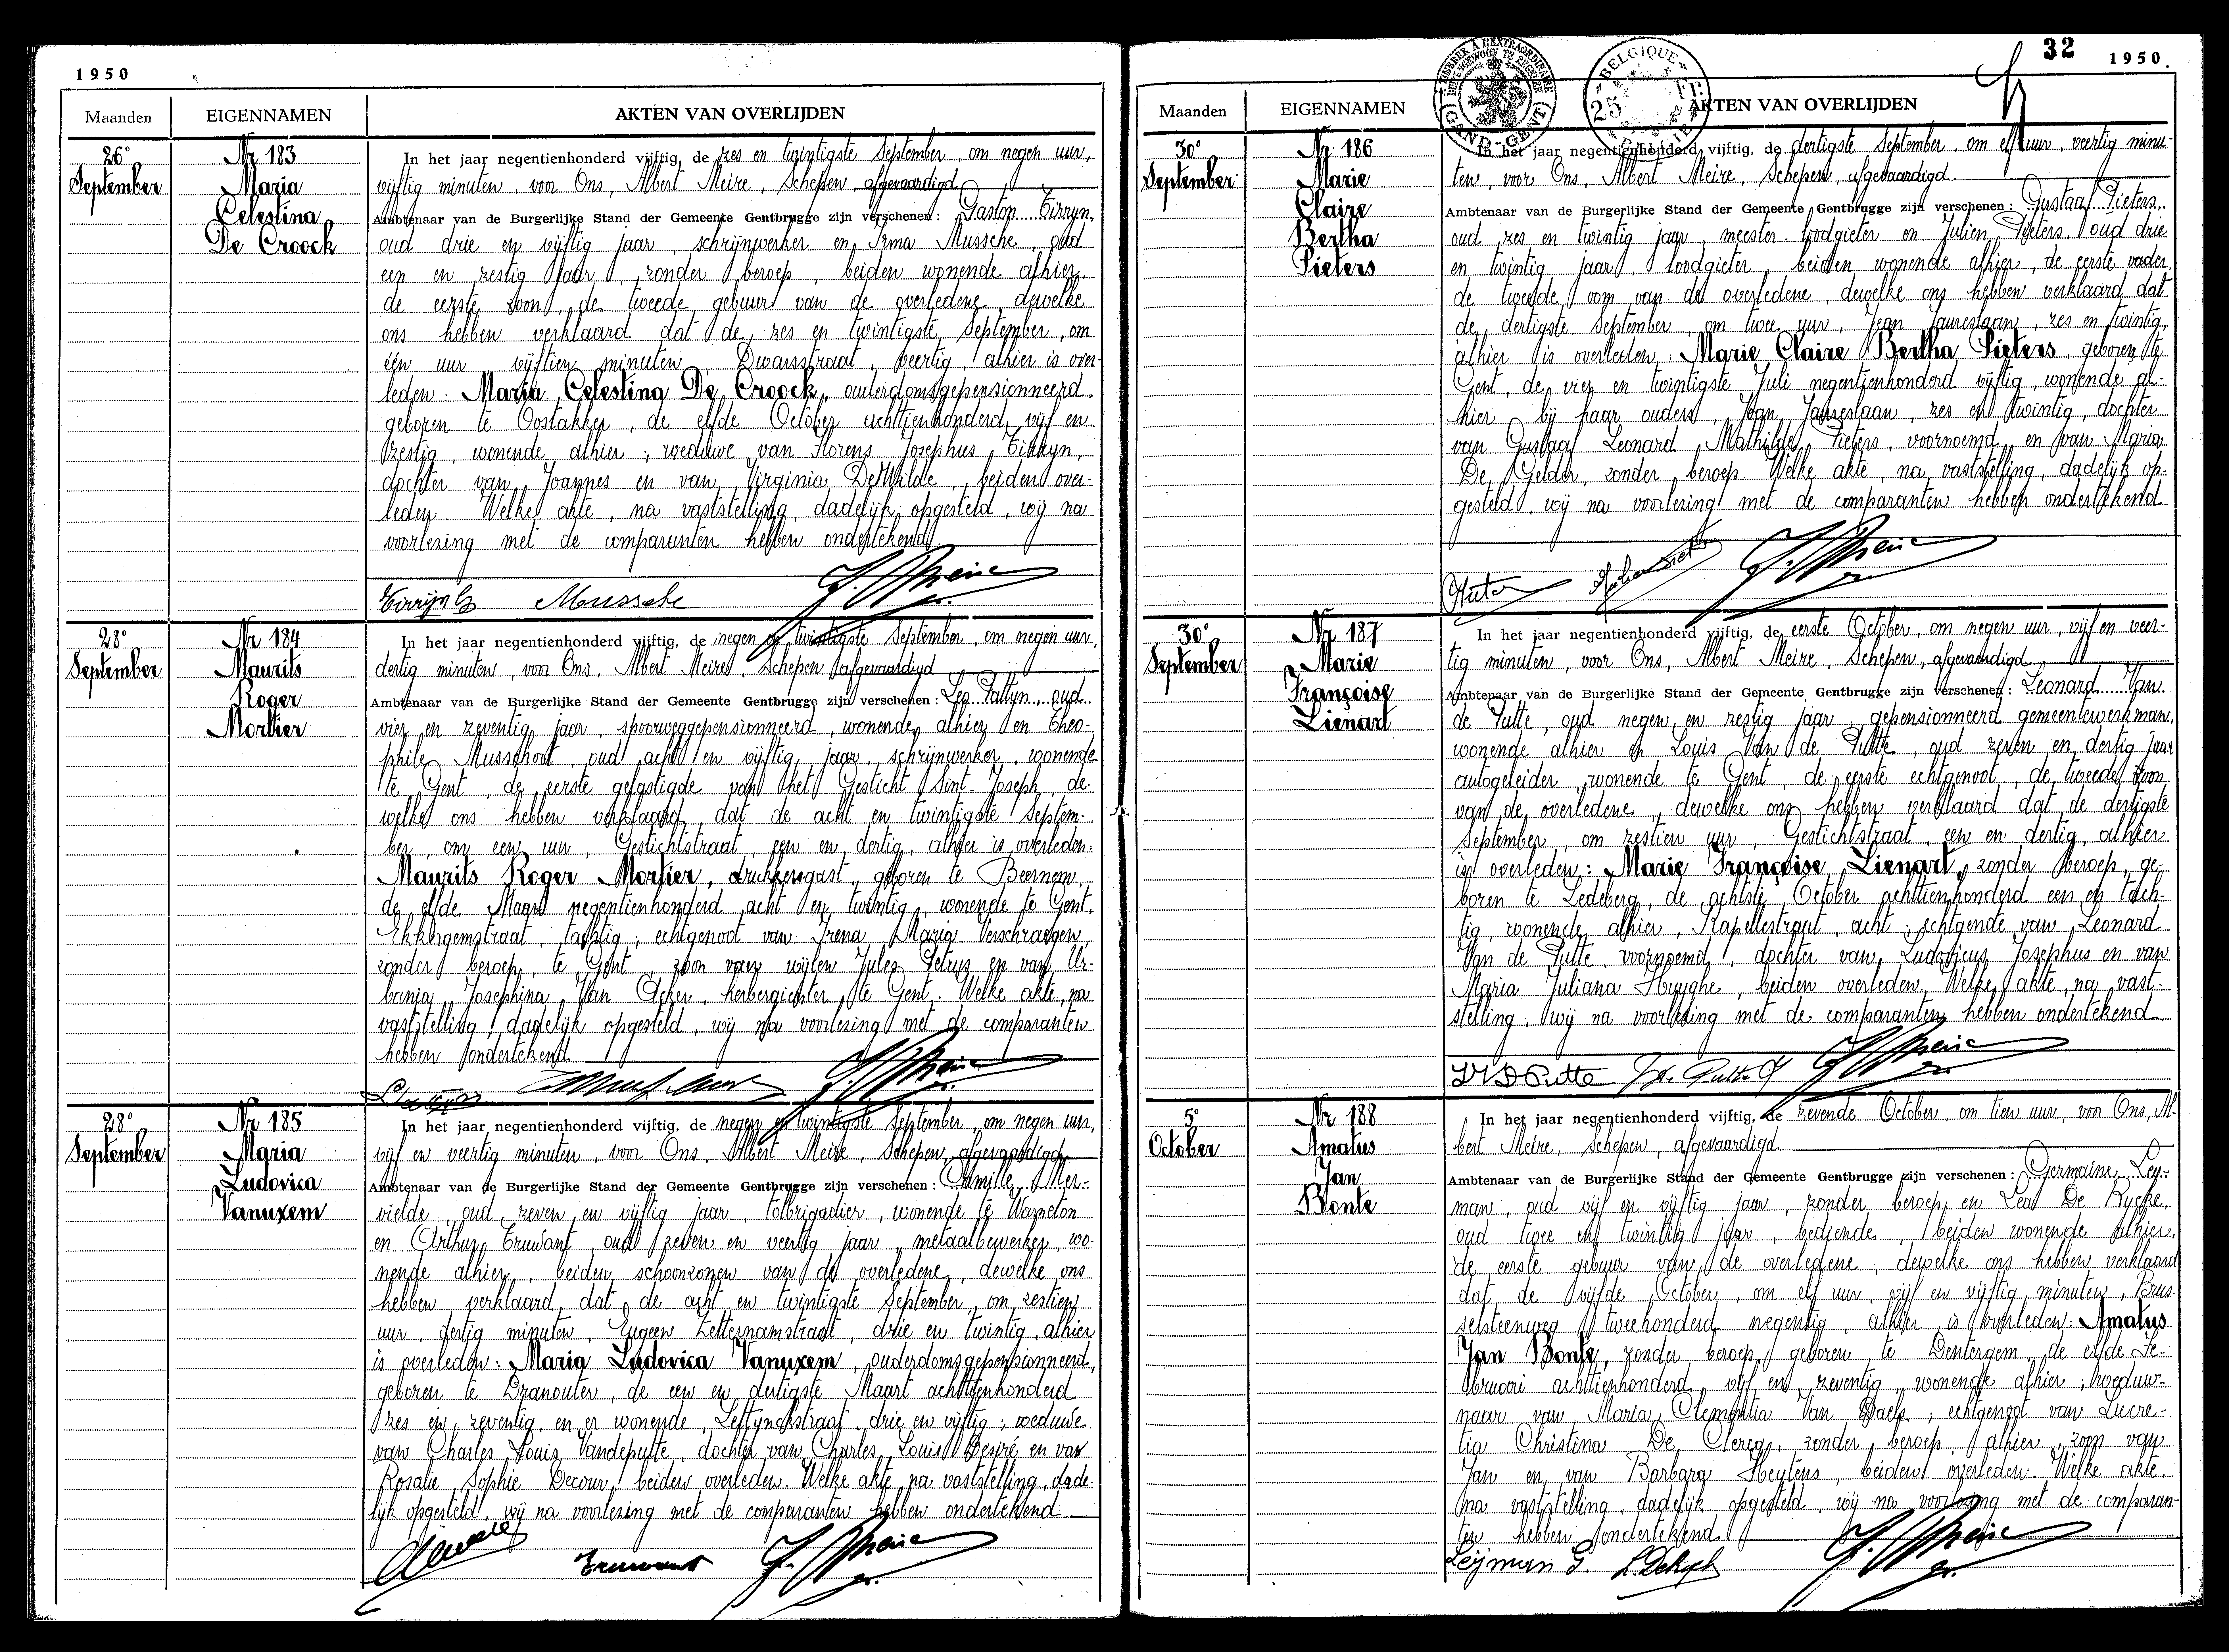 1950
Maanden
EIGENNAMEN
AKTEN VAN OVERLIJDEN
26°
September
Nr 183
Maria
Celestina
De Croock
In het jaar negentienhonderd vijftig, de zes en twintigste September, om negen uur,
vijftig minuten, voor Ons, Albert Meire, Schepen, afgevaardigd
Ambtenaar van de Burgerlijke Stand der Gemeente Gentbrugge zijn verschenen: Gaston Tirryn,
oud drie en vijftig jaar, schrijnwerker en Irma Mussche, oud
een en zestig jaar, zonder beroep, beiden wonende alhier,
de eerste zoon, de tweede gebuur van de overledene, dewelke
ons hebben verklaard dat de zes en twintigste September, om
één uur vijftien minuten, Dwarsstraat, veertig, alhier is over-
leden: Maria Celestina De Croock, ouderdomsgepensionneerd,
geboren te Oostakker, de elfde October achttienhonderd vijf en
zestig, wonende alhier; weduwe van Florens Josephus Tirryn,
dochter van Joannes en van Virginia De Wilde, beiden over-
leden. Welke akte, na vaststelling, dadelijk opgesteld, wij na
voorlezing met de comparanten hebben ondertekend.
Tirryn G Mussche A. Meire
28°
September
Nr 184
Maurits
Roger
Mortier
In het jaar negentienhonderd vijftig, de negen en twintigste September, om negen uur,
dertig minuten, voor Ons, Albert Meire, Schepen, afgevaardigd
Ambtenaar van de Burgerlijke Stand der Gemeente Gentbrugge zijn verschenen: Leo Pattyn, oud
vier en zeventig jaar, spoorweggepensionneerd, wonende alhier en Theo-
phile Musschoot, oud acht en vijftig jaar, schrijnwerker, wonende
te Gent, de eerste gelastigde van het Gesticht Sint-Joseph, de-
welke ons hebben verklaard dat de acht en twintigste Septem-
ber, om een uur, Gestichtstraat, een en dertig, alhier is overleden:
Maurits Roger Mortier, drukkersgast, geboren te Beernem,
de elfde Maart negentienhonderd acht en twintig, wonende te Gent,
Ekkergemstraat, tachtig; echtgenoot van Irena Maria Verschraegen,
zonder beroep, te Gent, zoon van wijlen Jules Petrus en van Ur-
bania Josephina Van Acker, herbergierster, te Gent. Welke akte, na
vaststelling, dadelijk opgesteld, wij na voorlezing met de comparanten
hebben ondertekend
A. Meire
28°
September
Nr 185
Maria
Ludovica
Vanuxem
In het jaar negentienhonderd vijftig, de negen en twintigste September, om negen uur,
vijf en veertig minuten, voor Ons, Albert Meire, Schepen, afgevaardigd
Ambtenaar van de Burgerlijke Stand der Gemeente Gentbrugge zijn verschenen: Camille Mer-
vielde, oud zeven en vijftig jaar, tolbrigadier, wonende te Warneton
en Arthur Eruwant, oud zeven en veertig jaar, metaalbewerker, wo-
nende alhier, beiden schoonzonen van de overledene, dewelke ons
hebben verklaard dat de acht en twintigste September, om zestien
uur, dertig minuten, Eugeen Zetternamstraat, drie en twintig, alhier
is overleden: Maria Ludovica Vanuxem, ouderdomsgepensionneerd,
geboren te Dranouter, de een en dertigste Maart achttienhonderd
zes en zeventig, en er wonende, Leffynckstraat, drie en vijftig; weduwe
van Charles Louis Vandeputte, dochter van Charles Louis Desiré en van
Rosalie Sophie Decour, beiden overleden. Welke akte, na vaststelling, dade-
lijk opgesteld, wij na voorlezing met de comparanten hebben ondertekend
Eruwant A. Meire
32
1950.
LIBBER A L'EXTRAORDINAIRE
BUITENGEWOON TE ZEGELEN
GAND-GENT
BELGIQUE
25 Fr.
BELGIE
Maanden
EIGENNAMEN
AKTEN VAN OVERLIJDEN
30°
September
Nr 186
Marie
Claire
Bertha
Pieters
In het jaar negentienhonderd vijftig, de dertigste September, om elf uur, veertig minu-
ten, voor Ons, Albert Meire, Schepen, afgevaardigd
Ambtenaar van de Burgerlijke Stand der Gemeente Gentbrugge zijn verschenen: Gustaaf Pieters,
oud zes en twintig jaar, meester-loodgieter en Julien Pieters, oud drie
en twintig jaar, loodgieter, beiden wonende alhier, de eerste vader,
de tweede oom van de overledene, dewelke ons hebben verklaard dat
de dertigste September, om twee uur, Jean Jaureslaan, zes en twintig,
alhier is overleden: Marie Claire Bertha Pieters, geboren te
Gent, de vier en twintigste Juli negentienhonderd vijftig, wonende al-
hier bij haar ouders, Jean Jaureslaan, zes en twintig, dochter
van Gustaaf Leonard Mathilde Pieters, voornoemd, en van Maria
De Gelder, zonder beroep. Welke akte, na vaststelling, dadelijk op-
gesteld, wij na voorlezing met de comparanten hebben ondertekend
A. Meire
30°
September
Nr 187
Marie
Françoise
Lienart
In het jaar negentienhonderd vijftig, de eerste October, om negen uur, vijf en veer-
tig minuten, voor Ons, Albert Meire, Schepen, afgevaardigd
Ambtenaar van de Burgerlijke Stand der Gemeente Gentbrugge zijn verschenen: Leonard Van
de Putte, oud negen en zestig jaar, gepensionneerd gemeentewerkman,
wonende alhier en Louis Van de Putte, oud zeven en dertig jaar
autogeleider, wonende te Gent, de eerste echtgenoot, de tweede zoon
van de overledene, dewelke ons hebben verklaard dat de dertigste
September, om zestien uur, Gestichtstraat, een en dertig, alhier
is overleden: Marie Françoise Lienart, zonder beroep, ge-
boren te Ledeberg, de achtste October achttienhonderd een en tach-
tig, wonende alhier, Kapellestraat, acht; echtgenote van Leonard
Van de Putte, voornoemd, dochter van Ludovicus Josephus en van
Maria Juliana Huyghe, beiden overleden. Welke akte, na vast-
stelling, wij na voorlezing met de comparanten hebben ondertekend
A. Meire
5°
October
Nr 188
Amatus
Jan
Bonte
In het jaar negentienhonderd vijftig, de zevende October, om tien uur, voor Ons, Al-
bert Meire, Schepen, afgevaardigd
Ambtenaar van de Burgerlijke Stand der Gemeente Gentbrugge zijn verschenen: Germaine Ley-
man, oud vijf en vijftig jaar, zonder beroep en Leo De Rycke,
oud twee en twintig jaar, bediende, beiden wonende alhier,
de eerste gebuur van de overledene, dewelke ons hebben verklaard
dat de vijfde October, om elf uur, vijf en vijftig minuten, Brus-
selsteenweg tweehonderd negentig, alhier is overleden: Amatus
Jan Bonte, zonder beroep, geboren te Dentergem, de elfde Fe-
bruari achttienhonderd vijf en zeventig, wonende alhier; weduw-
naar van Maria Clementia Van Daele; echtgenoot van Lucre-
tia Christina De Clercq, zonder beroep, alhier, zoon van
Jan en van Barbara Heytens, beiden overleden. Welke akte,
na vaststelling, dadelijk opgesteld, wij na voorlezing met de comparan-
ten hebben ondertekend
Leijman G. A. Meire